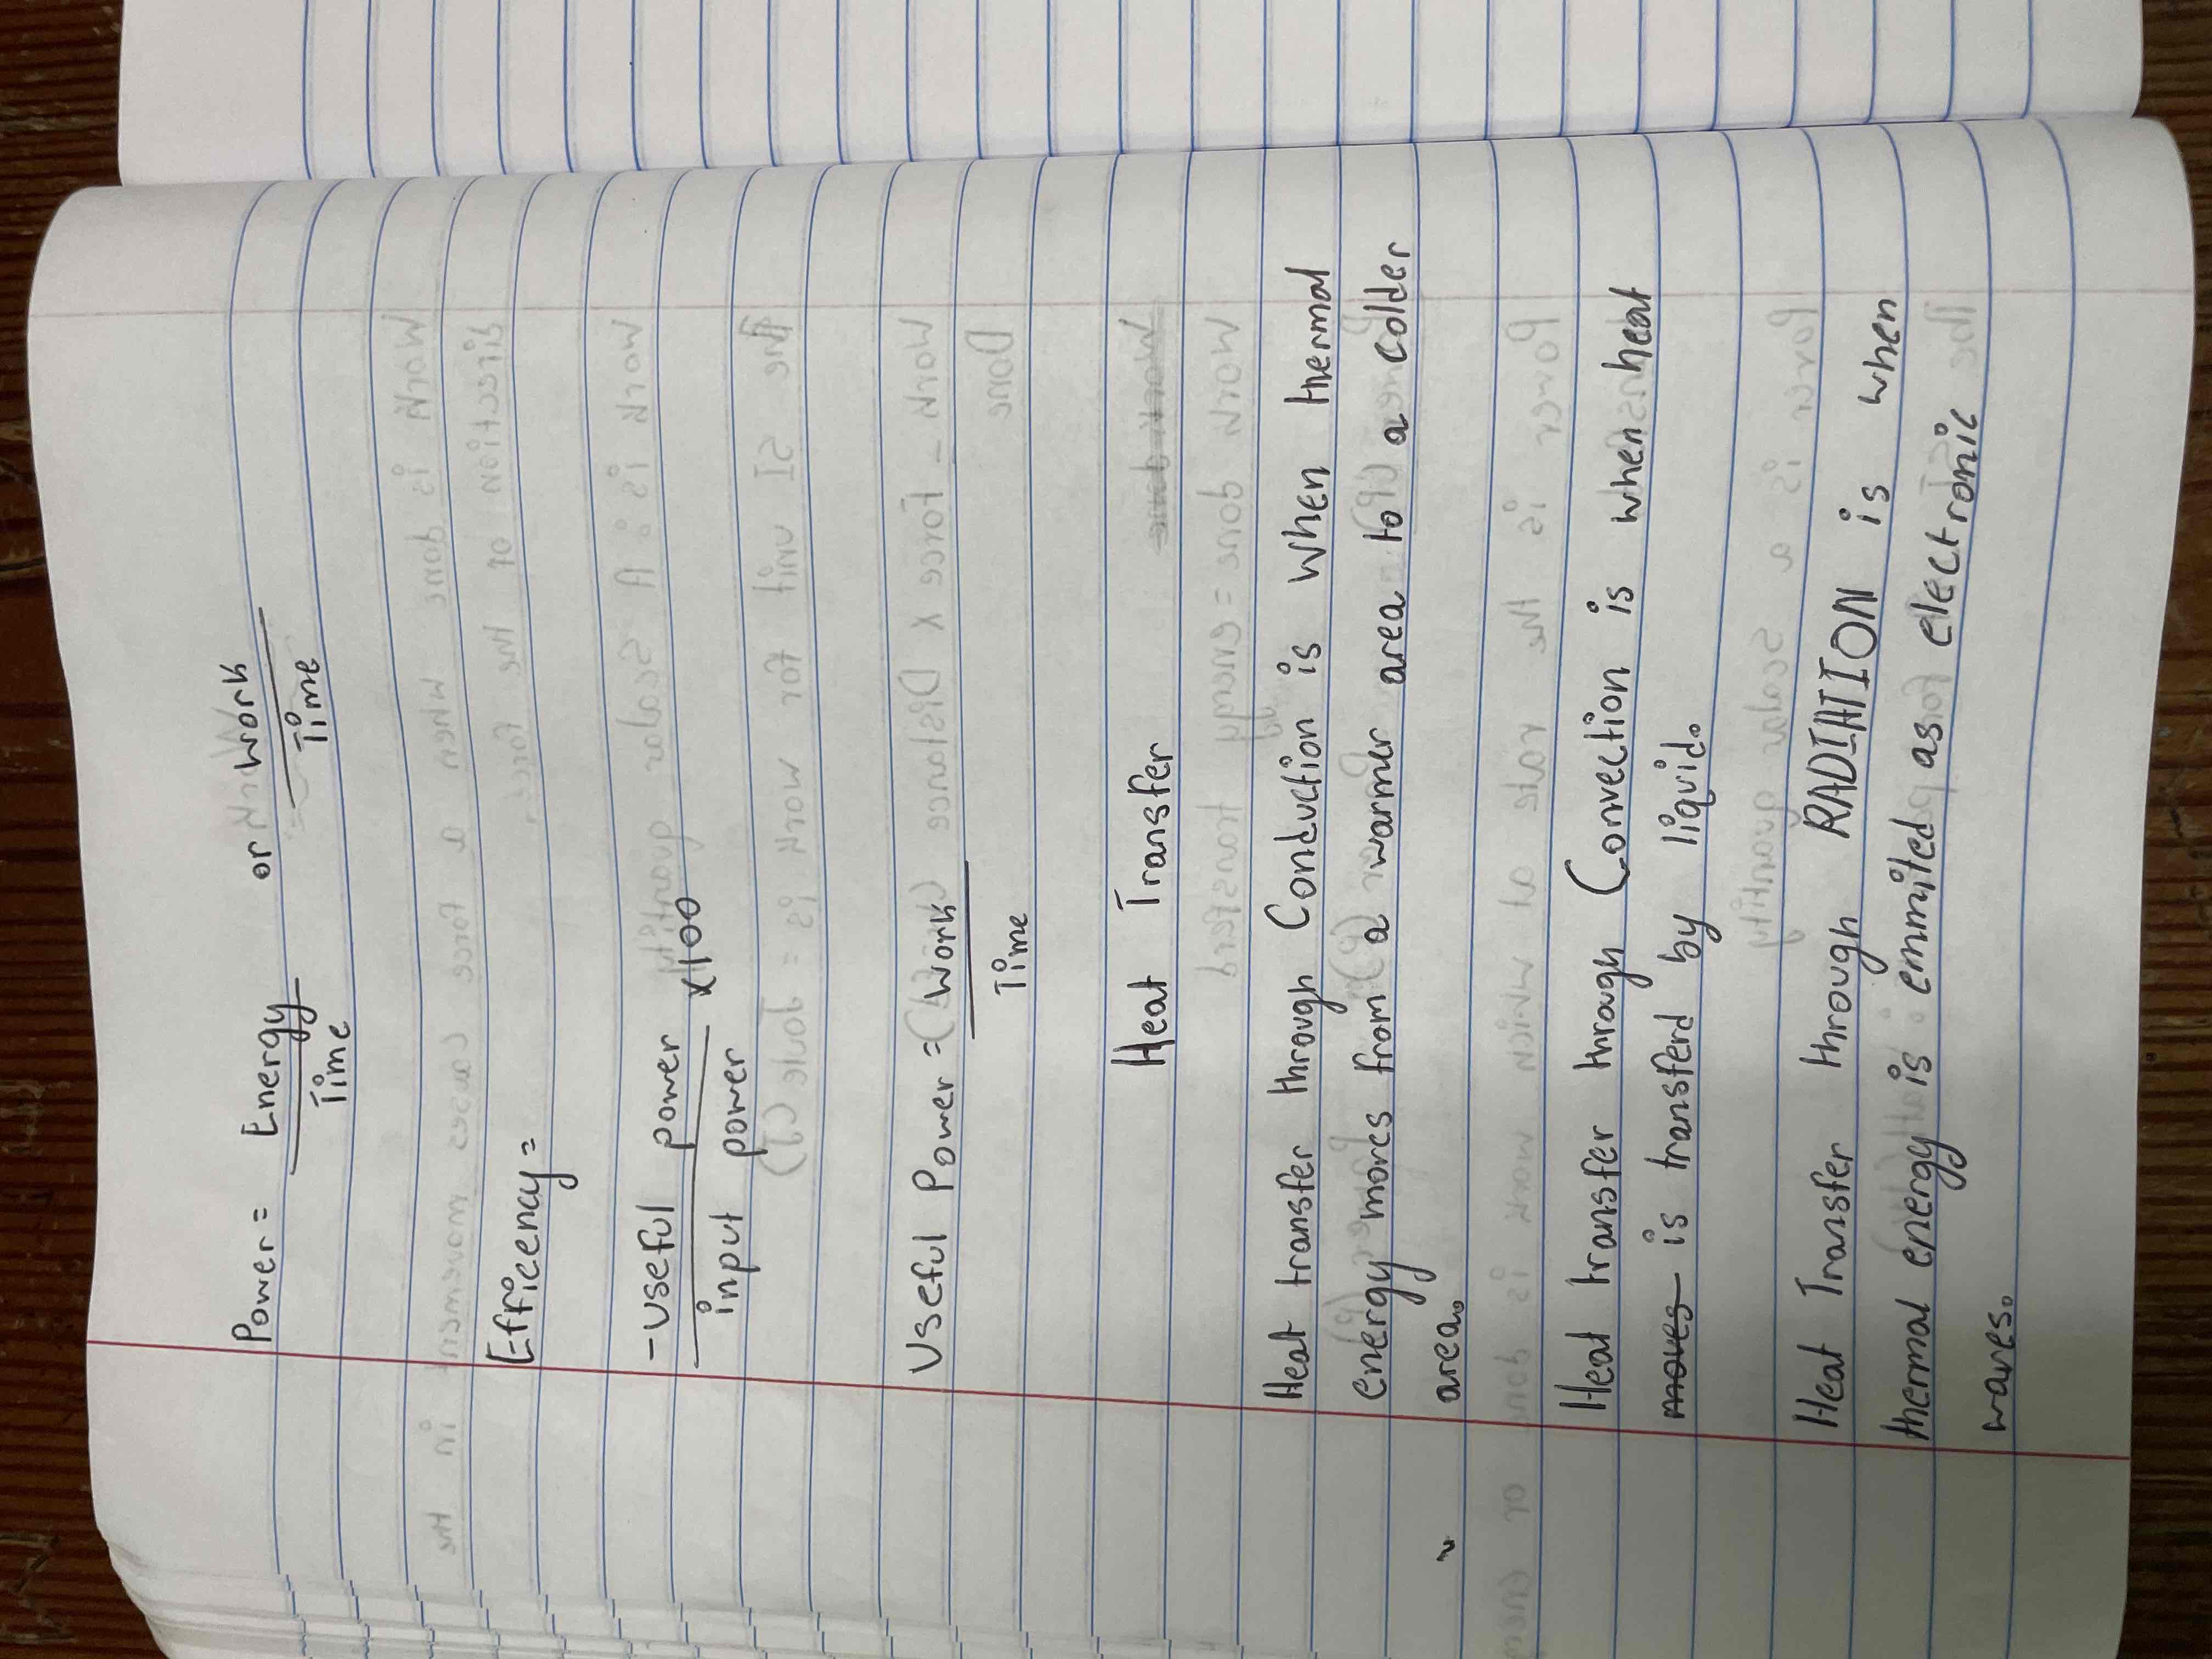 Power = Energy or Work
Time Time
Efficency =
-Useful power
input power x100
Useful Power = Work
Time
Heat Transfer
Heat transfer through Conduction is when thermal
energy moves from a warmer area to a colder
area.
Heat transfer through Convection is when heat
moves is transferd by liquid.
Heat Transfer through RADIATION is when
thermal energy is emmited as electronic
waves.